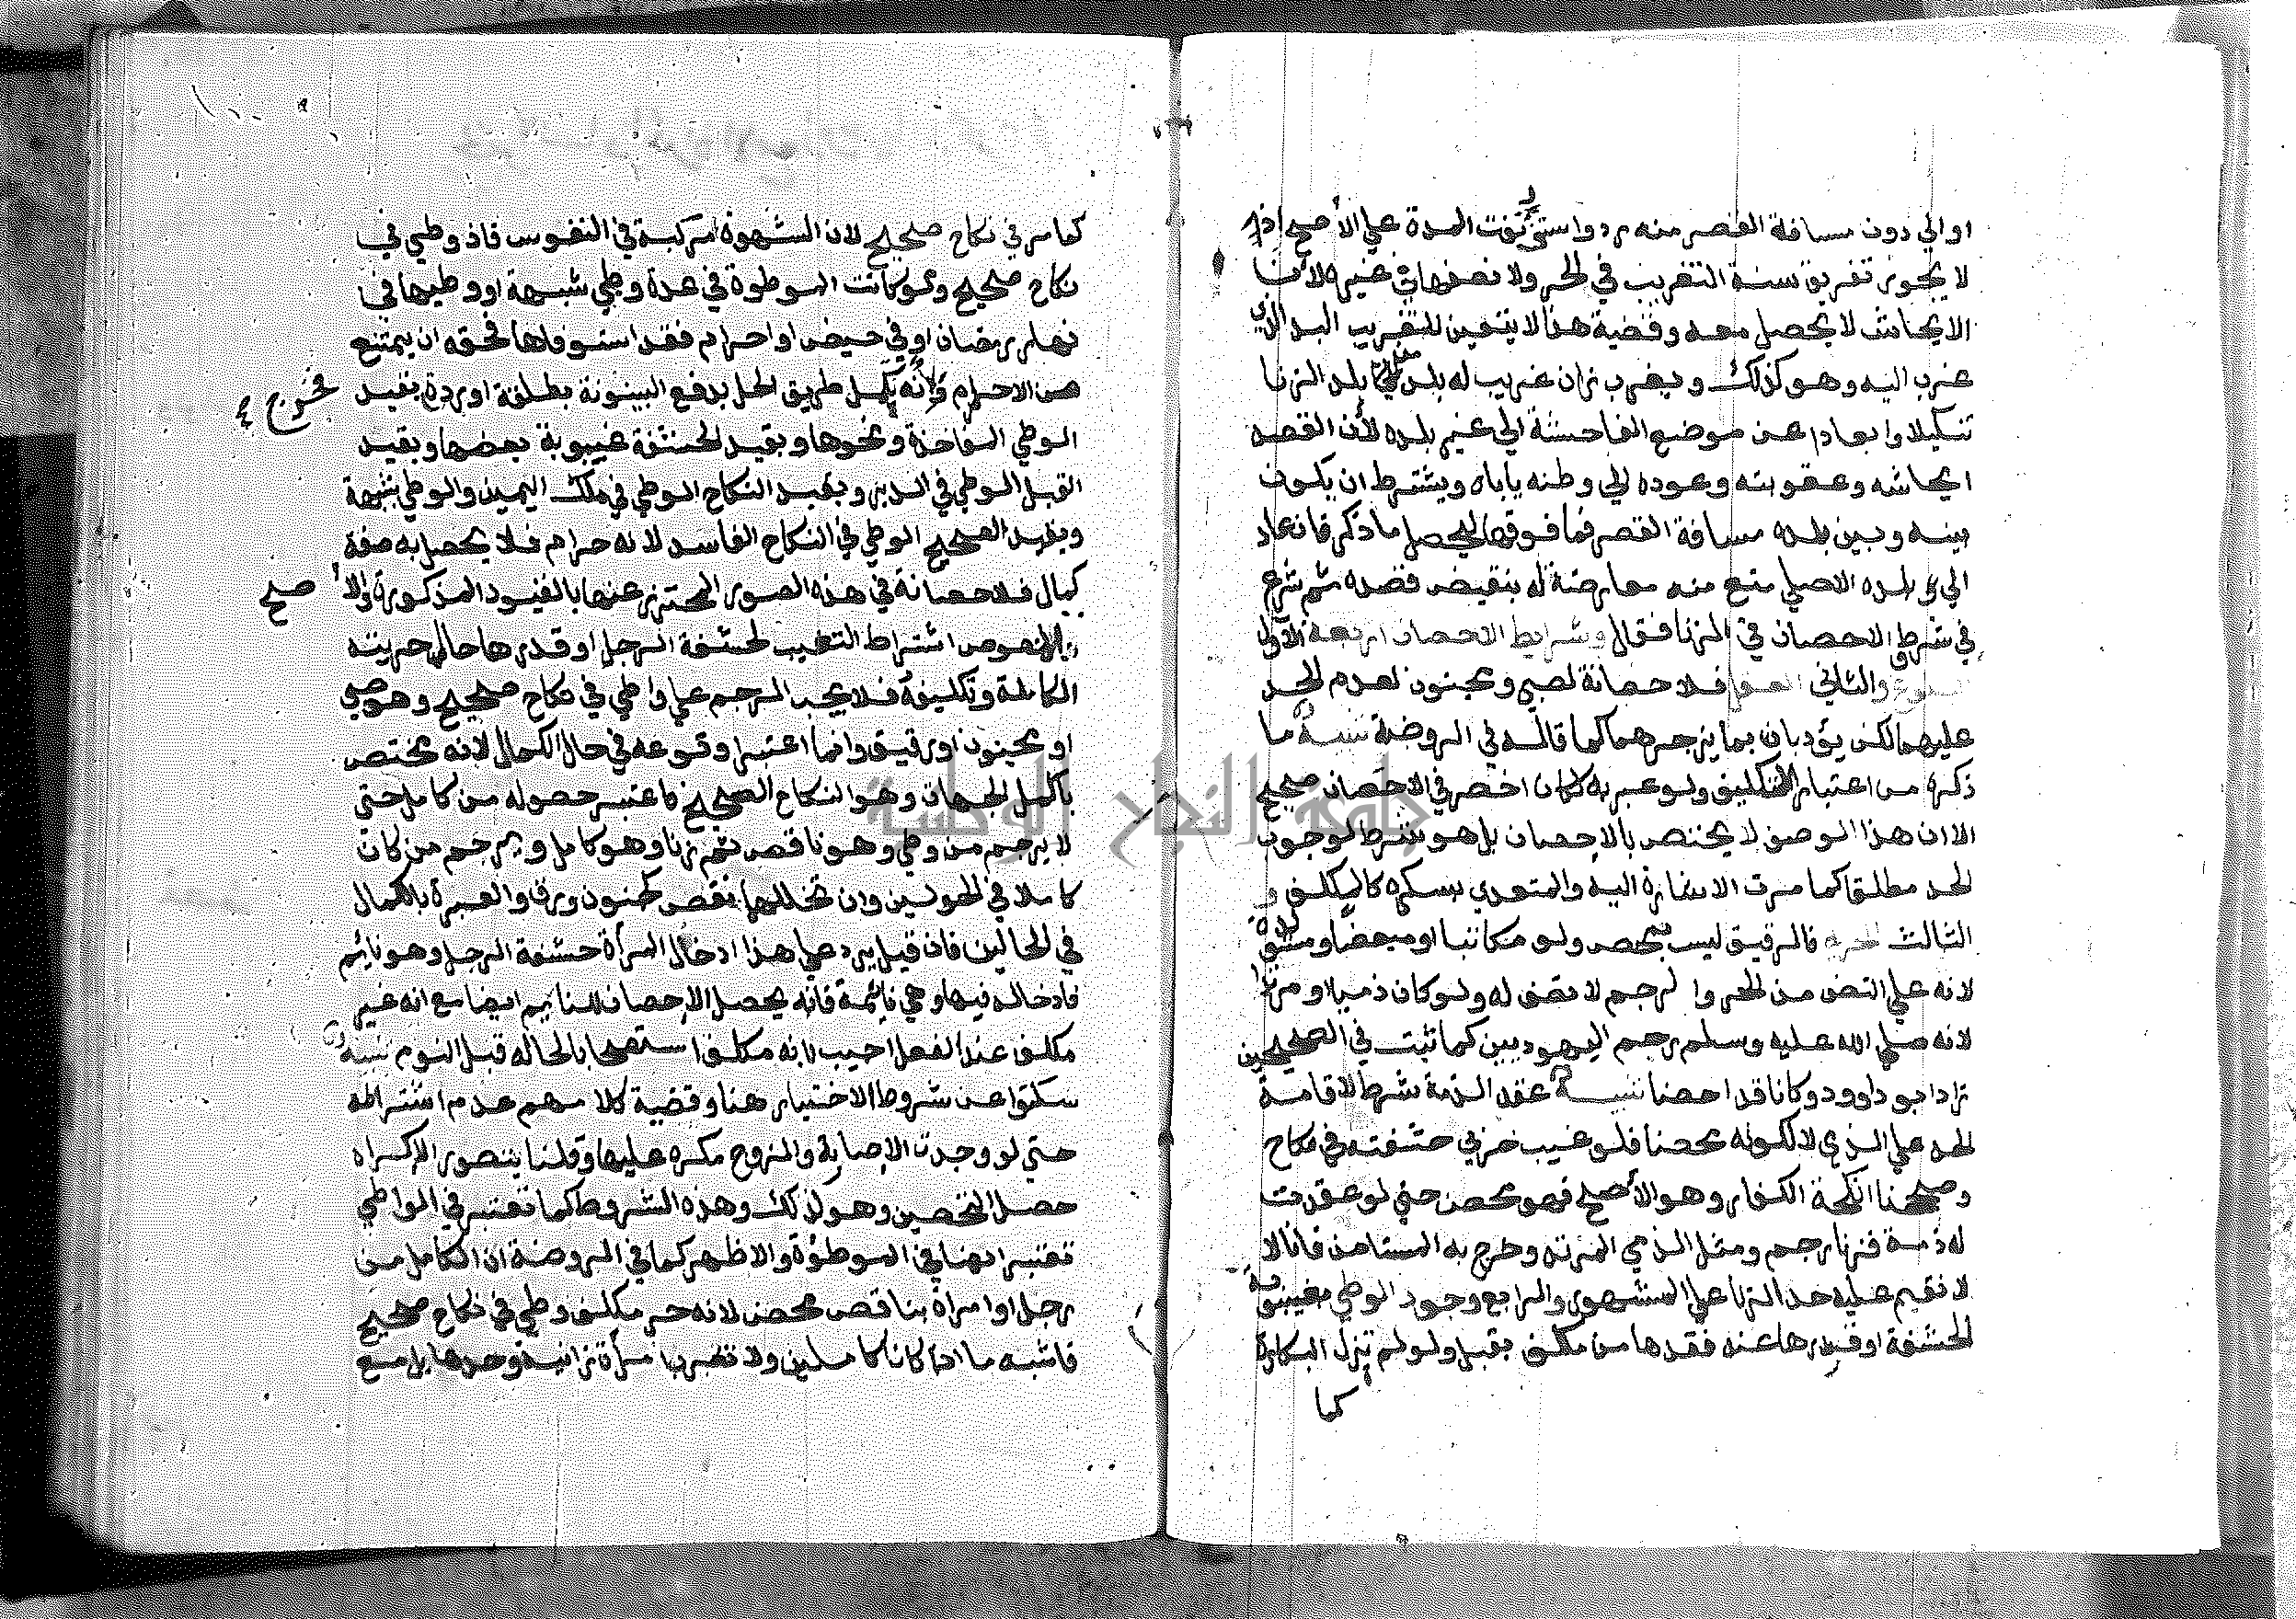 اوالي دون مسافة القصر منه رد واستؤنفت المدة علي الأصح اذ
لا يجوز تفريق سنة التغريب في الحر ولا نصفها في غيره لأن
الايحاش لا يحصل معه وقضية هذا لا يتعين للتغريب البلد الذي
غرب اليه وهو كذلك ويغرب زان غريب له بلد بلد الزنا
تنكيلا وابعادا عن موضع الفاحشة الي غير بلده لأن القصد
ايحاشه وعقوبته وعوده الي وطنه ياباه ويشترط ان يكون
بينه وبين بلده مسافة القصر فما فوقها ليحصل ما ذكر فان عاد
الي بلده الاصلي منع منه معارضة له بنقيض قصده ثم شرع
في شرط الاحصان في الزنا فقال وشرايط الاحصان اربعة الأول
البلوغ والثاني العقل فلا حصانة لصبي ومجنون لعدم الحد
عليهما لكن يؤدبان بما يزجرهما كما قاله في الروضة تنبيه ما
ذكره من اعتبار التكليف ولو عبر به لكان اخصر في الاحصان صحيح
الا ان هذا الوصف لا يختص بالاحصان بل هو شرط لوجوب
الحد مطلقا كما مرت الاشارة اليه والمتعدي بسكره كالمكلف و
الثالث الحرية فالرقيق ليس بمحصن ولو مكاتبا او مبعضا ومستولدة
لانه علي النصف من الحر والرجم لا نصف له ولو كان ذميا او مرتدا
لانه صلي الله عليه وسلم رجم اليهوديين كما ثبت في الصحيحين
زاد ابو داوود وكانا قد احصنا تنبيه عقد الذمة شرط لاقامة
الحد علي الذمي لا لكونه محصنا فلو غيب حربي حشفته في نكاح
وصححنا انكحة الكفار وهو الأصح فهو محصن حتي لو عقدت
له ذمة فزنا رجم ومثل الذمي المرتد وخرج به المستامن فانا لا
لا نقيم عليه حد الزنا علي المشهور والرابع وجود الوطي بغيبوبة
الحشفة او قدرها عند فقدها من مكلف بقبل ولو لم تزل البكارة
كما
كما مر في نكاح صحيح لان الشهوة مركبة في النفوس فاذ وطي في
نكاح صحيح ولو كانت الموطوة في عدة وطي شبهة او وطيها في
نهار رمضان او في حيض او احرام فقد استوفاها فحقه ان يمتنع
من الحرام ولأنه يكمل طريق الحل بدفع البينونة بطلقة او ردة بقيد فخرج
الوطي المفاخذة ونحوها وبقيد الحشفة غيبوبة بعضها وبقيد
القبل الوطي في الدبر وبقيد النكاح الوطي في ملك اليمين والوطي بشبهة
وبقيد الصحيح الوطي في النكاح الفاسد لانه حرام فلا يحصل به صفة
كمال فلا حصانة في هذه الصور المحترز عنها بالقيود المذكورة والأصح
المنصوص اشتراط التغييب لحشفة الرجل او قدرها حال حريته
الكاملة وتكليفه فلا يجب الرجم علي واطي في نكاح صحيح وهو صبي
او مجنون او رقيق وانما اعتبر وقوعه في حال الكمال لانه مختص
باكمل الجهات وهو النكاح الصحيح فاعتبر حصوله من كامل حتي
لا يرجم من وطي وهو ناقص ثم زنا وهو كامل ويرجم من كان
كاملا في الحولين وان تخللهما نقص كجنون ورق والعبرة بالكمال
في الحالين فان قيل يرد علي هذا ادخال المرأة حشفة الرجل وهو نايم
فادخاله فيها وهي نائمة فانه يحصل الاحصان للنايم ايضا مع انه غير
مكلف عند الفعل اجيب بانه مكلف استصحابا لحاله قبل النوم تنبيه
سكتوا عن شروط الاختيار هنا وقضية كلامهم عدم اشتراطه
حتي لو وجدت الاصابة والزوج مكره عليها وقلنا يتصور الاكراه
حصل التحصين وهو كذلك وهذه الشروط كما تعتبر في الواطي
تعتبر ايضا في الموطؤة والاظهر كما في الروضة ان الكامل من
رجل او امراة بناقص محصن لانه حر مكلف وطي في نكاح صحيح
فاشبه ما اذا كانا كاملين ولا تغرب امرأة زانية وحدها بل مع
جامعة النجاح الوطنية